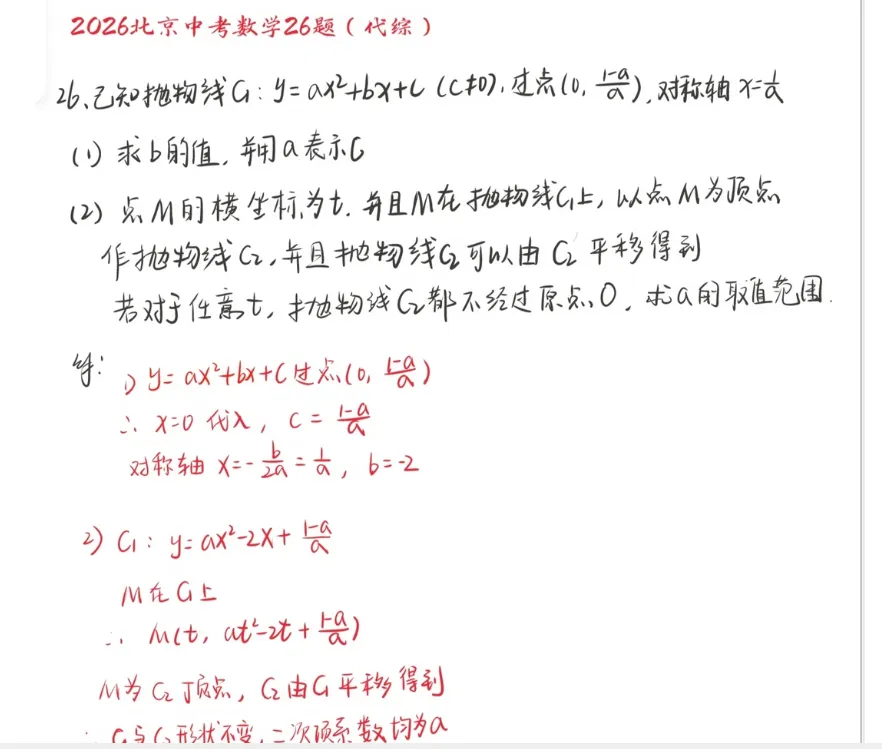 2026北京中考数学26题(代综)
26、已知抛物线C₁: y=ax²+bx+c (c≠0), 过点(0, (1-a)/a), 对称轴 x=1/a
(1) 求b的值, 并用a表示C
(2) 点M的横坐标为t. 并且M在抛物线C₁上, 以点M为顶点
作抛物线C₂, 并且抛物线C₂可以由C₂平移得到
若对于任意t, 抛物线C₂都不经过原点O, 求a的取值范围.
解:
1) y=ax²+bx+C过点(0, (1-a)/a)
∴ x=0代入, c=(1-a)/a
对称轴 x=-b/2a=1/a, b=-2
2) C₁: y=ax²-2x+(1-a)/a
M在C₁上
∴ M(t, at²-2t+(1-a)/a)
M为C₂顶点, C₂由C₁平移得到
∴ C₁与C₂形状不变, 二次项系数均为a